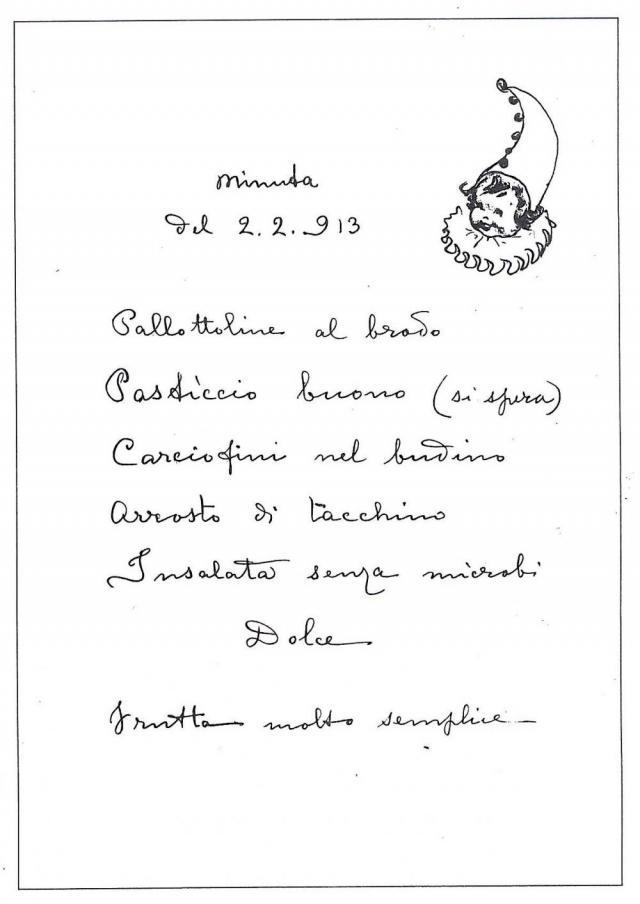 Minuta
del 2.2.913
Pallottoline al brodo
Pasticcio buono (si spera)
Carciofini nel budino
Arrosto di tacchino
Insalata senza microbi
Dolce
Frutta molto semplice